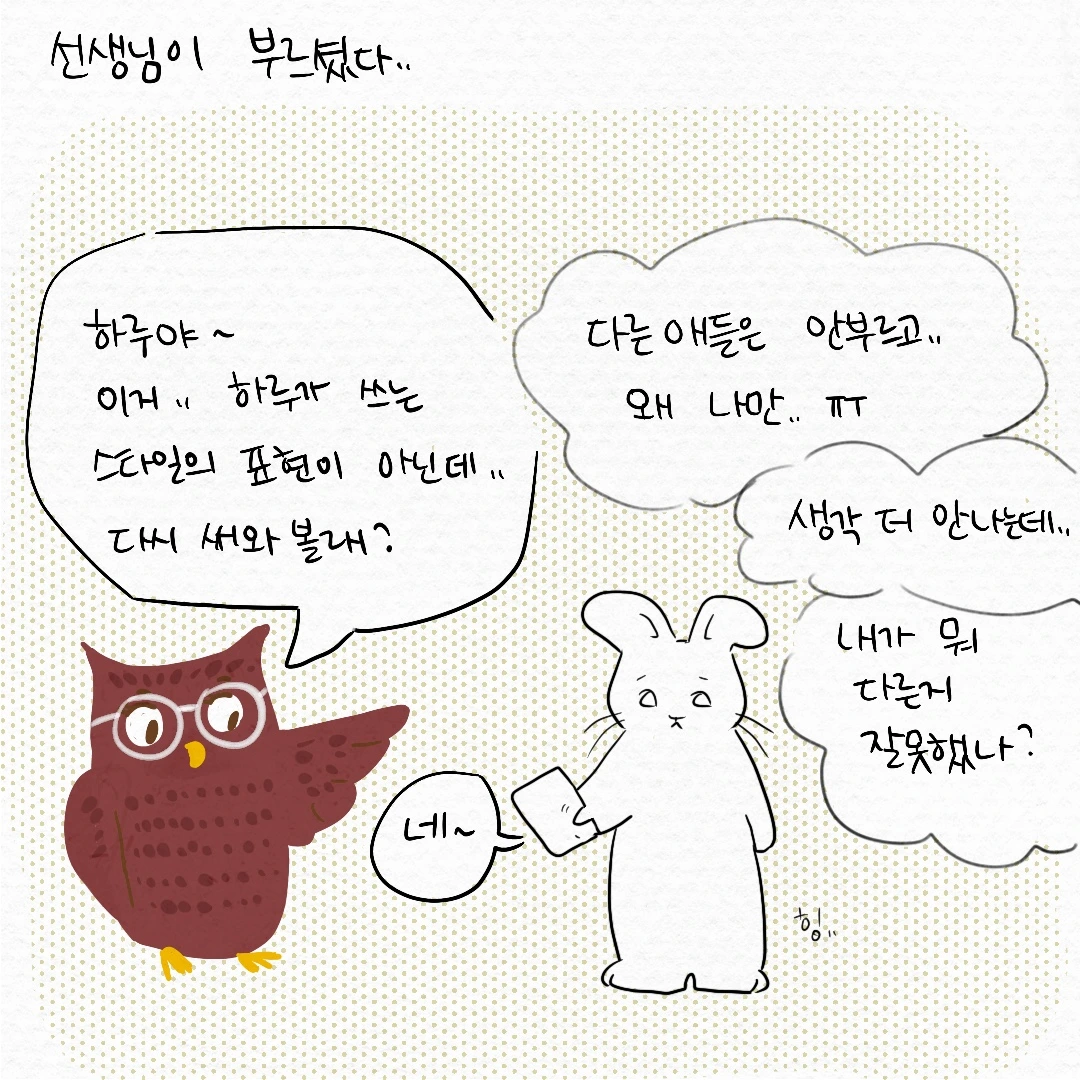 선생님이 부르셨다..
하루야~
이거.. 하루가 쓰는
스타일의 표현이 아닌데..
다시 써와볼래?
다른 애들은 안부르고..
왜 나만.. ㅠㅜ
생각 더 안나는데..
내가 뭐
다른거
잘못했나?
네~
힝..